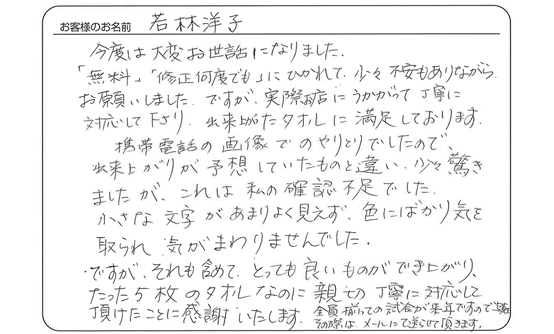 お客様のお名前 若林洋子
今度は大変お世話になりました.
「無料」「修正何度でも」にひかれて、少々不安もありながら
お願いしました. ですが、実際お店にうかがって丁寧に
対応して下さり、出来上がたタオルに満足しております.
携帯電話の画像でのやりとりでしたので、
出来上がりが予想していたものと違い、少々驚き
ましたが、これは私の確認不足でした.
小さな文字があまりよく見えず、色にばかり気を
取られ気がまわりませんでした.
ですが、それも含めて、とっても良いものができ上がり、
たった5枚のタオルなのに親切丁寧に対応して
頂けたことに感謝いたします.
全員揃っての試合が来年ですので
その際は、メールにて送らせて頂きます.